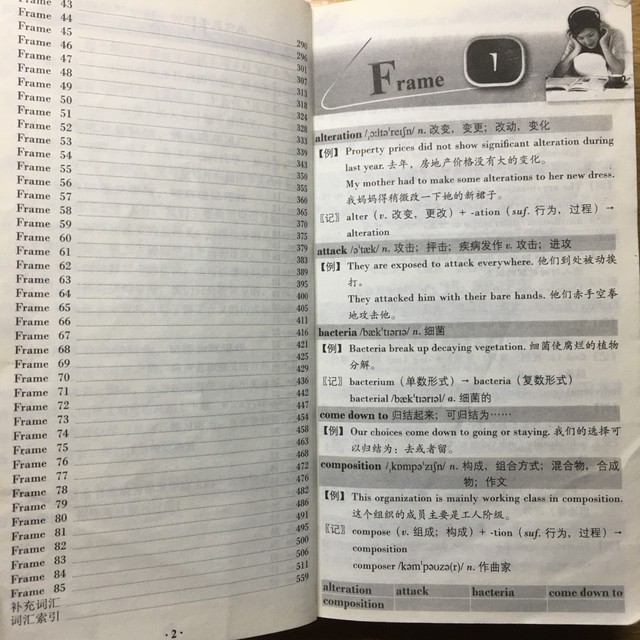 Frame 43
Frame 44
Frame 45
Frame 46
Frame 47
Frame 48
Frame 49
Frame 50
Frame 51
Frame 52
Frame 53
Frame 54
Frame 55
Frame 56
Frame 57
Frame 58
Frame 59
Frame 60
Frame 61
Frame 62
Frame 63
Frame 64
Frame 65
Frame 66
Frame 67
Frame 68
Frame 69
Frame 70
Frame 71
Frame 72
Frame 73
Frame 74
Frame 75
Frame 76
Frame 77
Frame 78
Frame 79
Frame 80
Frame 81
Frame 82
Frame 83
Frame 84
Frame 85
补充词汇
词汇索引
290
296
301
307
313
318
324
328
333
339
350
355
360
365
370
375
379
383
389
395
400
405
411
416
421
425
429
436
442
447
454
458
463
468
472
476
482
486
491
495
500
506
511
559
·2·
Frame 1
alteration /ˌɔːltəˈreɪʃn/ n. 改变，变更；改动，变化
【例】 Property prices did not show significant alteration during
last year. 去年，房地产价格没有大的变化。
My mother had to make some alterations to her new dress.
我妈妈得稍微改一下她的新裙子。
〖记〗 alter (v. 改变，更改) + -ation (suf. 行为，过程) →
alteration
attack /əˈtæk/ n. 攻击；抨击；疾病发作 v. 攻击；进攻
【例】 They are exposed to attack everywhere. 他们到处被动挨
打。
They attacked him with their bare hands. 他们赤手空拳
地攻击他。
bacteria /bækˈtɪərɪə/ n. 细菌
【例】 Bacteria break up decaying vegetation. 细菌使腐烂的植物
分解。
〖记〗 bacterium (单数形式) → bacteria (复数形式)
bacterial /bækˈtɪərɪəl/ a. 细菌的
come down to 归结起来；可归结为……
【例】 Our choices come down to going or staying. 我们的选择可
以归结为：去或者留。
composition /ˌkɒmpəˈzɪʃn/ n. 构成，组合方式；混合物，合成
物；作文
【例】 This organization is mainly working class in composition.
这个组织的成员主要是工人阶级。
〖记〗 compose (v. 组成；构成) + -tion (suf. 行为，过程) →
composition
composer /kəmˈpəʊzə(r)/ n. 作曲家
alteration attack bacteria come down to
composition